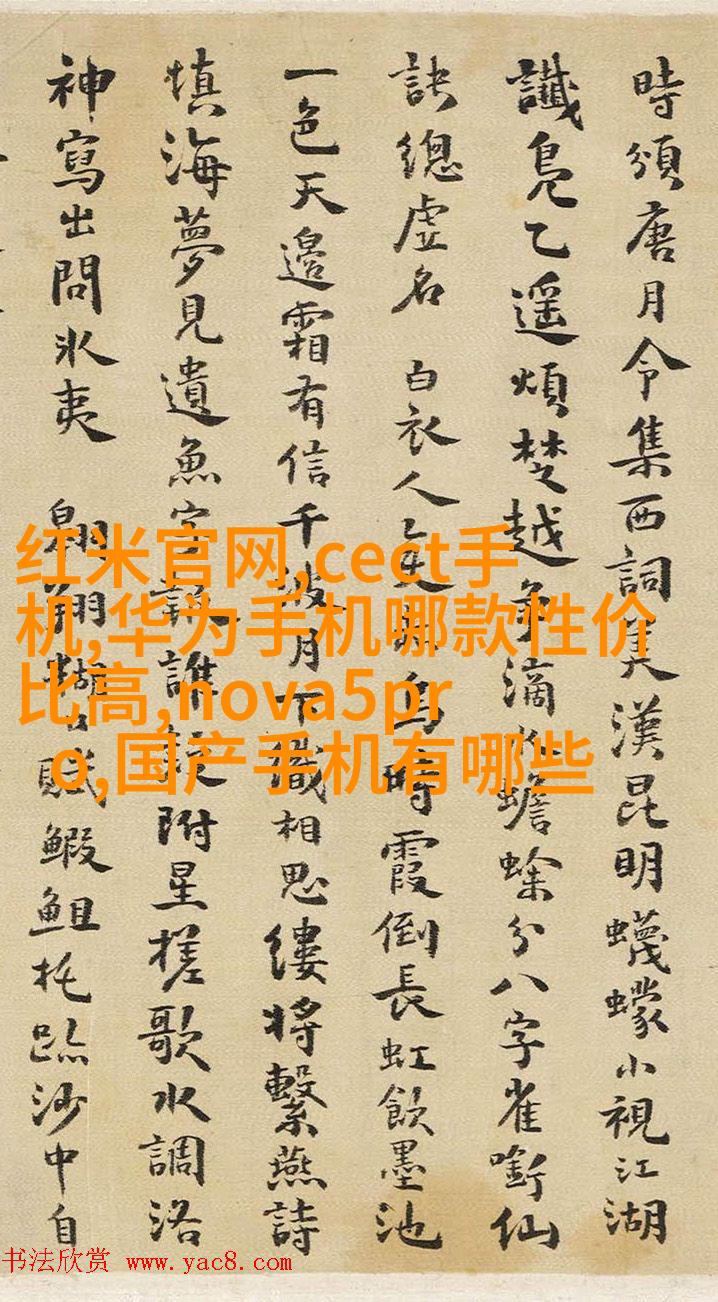 時頒唐月令集西詞美漢昆明蠛蠓小視江湖
讖鳧乙遥煩楚越争滴水蟾蜍分八字雀銜仙
訣總虚名 白衣人烏時霞倒長虹飲墨池
一色天邊霜有信千波月下織相思縷將繫燕詩
填海夢見遺魚字報誰疑附星槎歌水調洛
神寫出問冰夷 翱翔糊賦鰕鮙托跡沙中自
红米官网,cect手
机,华为手机哪款性价
比高,nova5pr
o,国产手机有哪些
书法欣赏 www.yac8.com